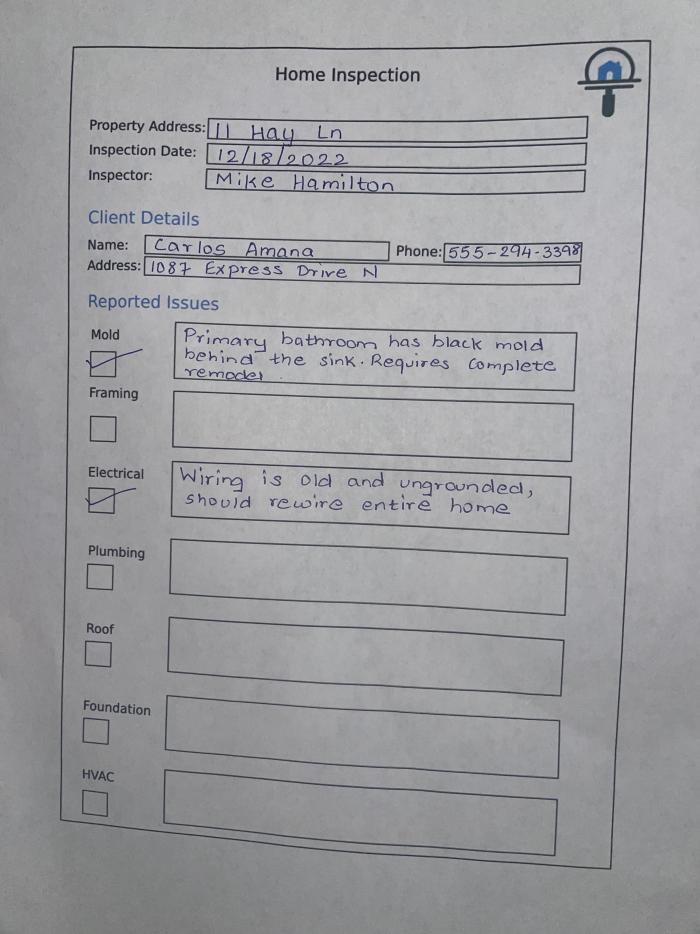 Home Inspection
Property Address: 11 Hay Ln
Inspection Date: 12/18/2022
Inspector: Mike Hamilton
Client Details
Name: Carlos Amana Phone: 555-294-3398
Address: 1087 Express Drive N
Reported Issues
Mold
Primary bathroom has black mold
behind the sink. Requires complete
remodel.
Framing
Electrical
Wiring is old and ungrounded,
should rewire entire home
Plumbing
Roof
Foundation
HVAC